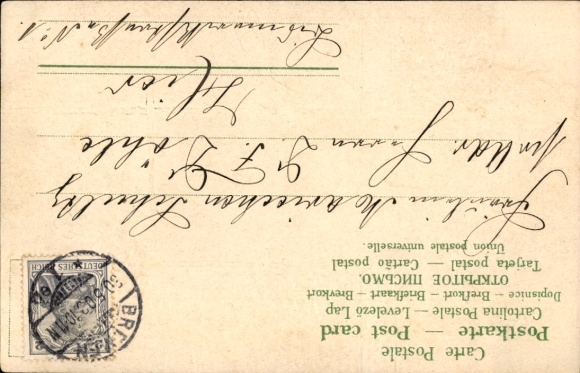 Carte Postale
Postkarte — Post card
Cartolina Postale — Levelező Lap
Dopisnice — Brefkort — Briefkaart — Brevkort
ОТКРЫТОЕ ПИСЬМО.
Tarjeta postal — Cartão postal
Union postale universelle.
DEUTSCHES REICH
2
BREMEN
Fräulein Mariechen Schulz
Herrn F. Döhle
Hier
Bismarckstrasse No